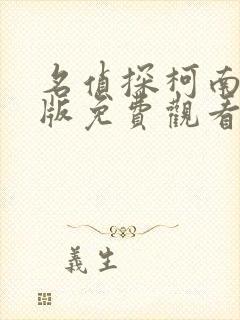 名偵探柯南
版免費觀看
義生